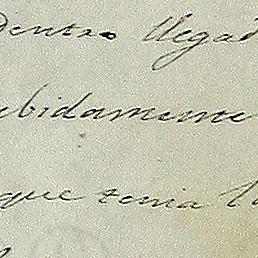 dentro llegad
ebidamente
que tenia l